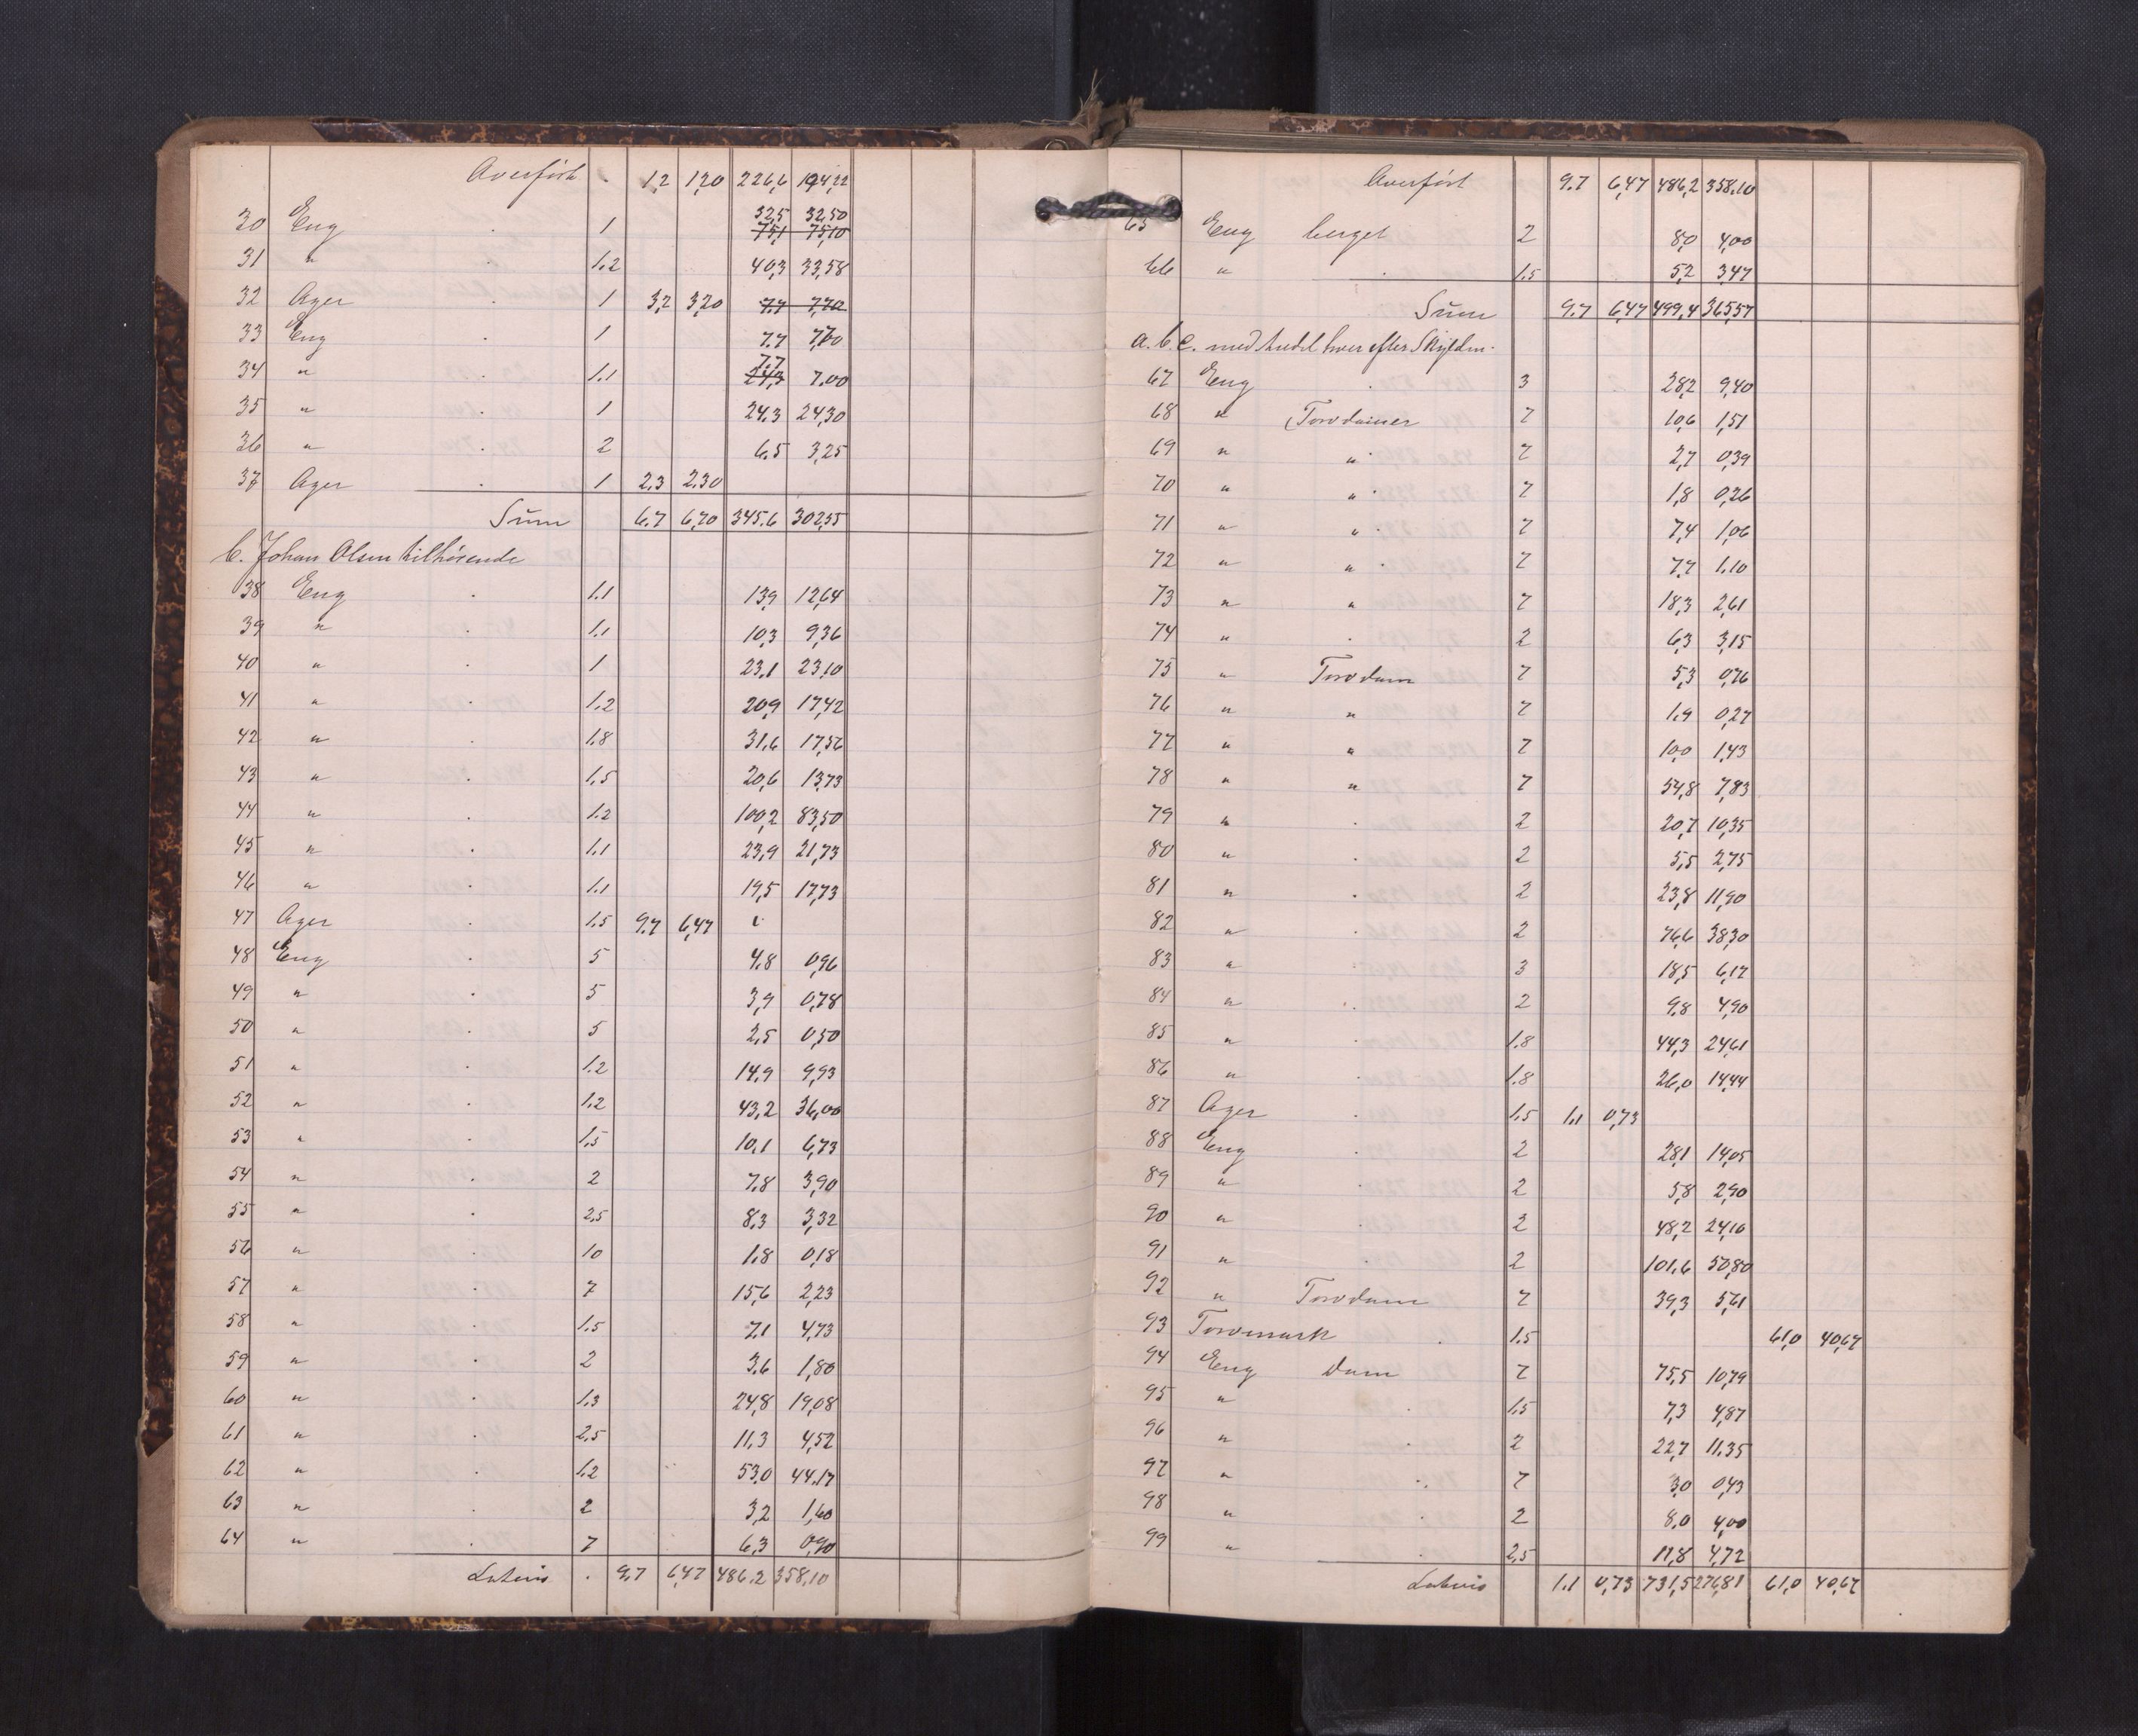 Overført . 1,2 1,20 226,6 194,22
32,5 32,50
30 Eng . 1 75,1 75,10
31 " . 1.2 40,3 33,58
32 Ager . 1 3,2 3,20 7.7 7,70
33 Eng 1 7.7 7,70
7.7
34 " . 1.1 24,3 7.00
35 " . 1 24.3 24,30
36 " . 2 6.5 3,25
37 Ager . 1 2.3 2.30
Sum 6.7 6,70 345.6 302,55
b. Johan Olsen tilhørende
38 Eng . 1.1 13,9 12,64
39 " . 1.1 10,3 9,36
40 " . 1 23,1 23,10
41 " . 1.2 20,9 17,42
42 " . 1.8 31,6 17,56
43 " . 1,5 20,6 13,73
44 " . 1.2 100,2 83,50
45 " . 1.1 23,9 21,73
46 " . 1.1 19,5 17,73
47 Ager . 1.5 9.7 6,47
48 Eng . 5 4.8 0,96
49 " . 5 3,9 0,78
50 " . 5 2,5 0,50
51 " . 1.2 14,9 9,93
52 " . 1.2 43,2 36,00
53 " . 1.5 10,1 6,73
54 " . 2 7.8 3,90
55 " . 2,5 8,3 3,32
56 " . 10 1.8 0,18
57 " . 7 15,6 2,23
58 " . 1.5 7,1 4,73
59 " . 2 3,6 1,80
60 " . 1.3 24,8 19,08
61 " . 2,5 11,3 4,52
62 " . 1.2 53,0 44,17
63 " . 2 3,2 1,60
64 " . 7 6,3 0,90
Lateris . 9,7 6,47 486.2 358,10
Overført 9.7 6,47 486,2 358,10
65 Eng berget 2 8,0 4,00
66 " . 1.5 5,2 3,47
Sum 9.7 6,47 499,4 365,57
a. b. c. med andel hver efter Skylden.
67 Eng . 3 28,2 9,40
68 " Torvdamer 7 10,6 1,51
69 " " 7 2,7 0,39
70 " " 7 1,8 0,26
71 " " 7 7,4 1,06
72 " " 7 7,7 1.10
73 " " 7 18,3 2,61
74 " . 2 6,3 3,15
75 " Torvdam 7 5,3 0,76
76 " " 7 1.9 0,27
77 " " 7 10,0 1,43
78 " " 7 54,8 7,83
79 " . 2 20,7 10,35
80 " . 2 5,5 2,75
81 " . 2 23,8 11,90
82 " . 2 76,6 38,30
83 " . 3 18,5 6,17
84 " . 2 9,8 4,90
85 " . 1.8 44,3 24,61
86 " . 1.8 26,0 14,44
87 Ager . 1.5 1.1 0,73
88 Eng . 2 28,1 14,05
89 " . 2 5,8 2,90
90 " . 2 48,2 24,10
91 " . 2 101,6 50,80
92 " Torvdam 7 39,3 5,61
93 Torvmark . 1.5 61,0 40,67
94 Eng Dam 7 75,5 10,79
95 " . 1.5 7,3 4,87
96 " . 2 22,7 11.35
97 " . 7 3,0 0,43
98 " . 2 8.0 4,00
99 " . 2,5 11,8 4,72
Lateris 1.1 0,73 731,5 276,81 61,0 40,67